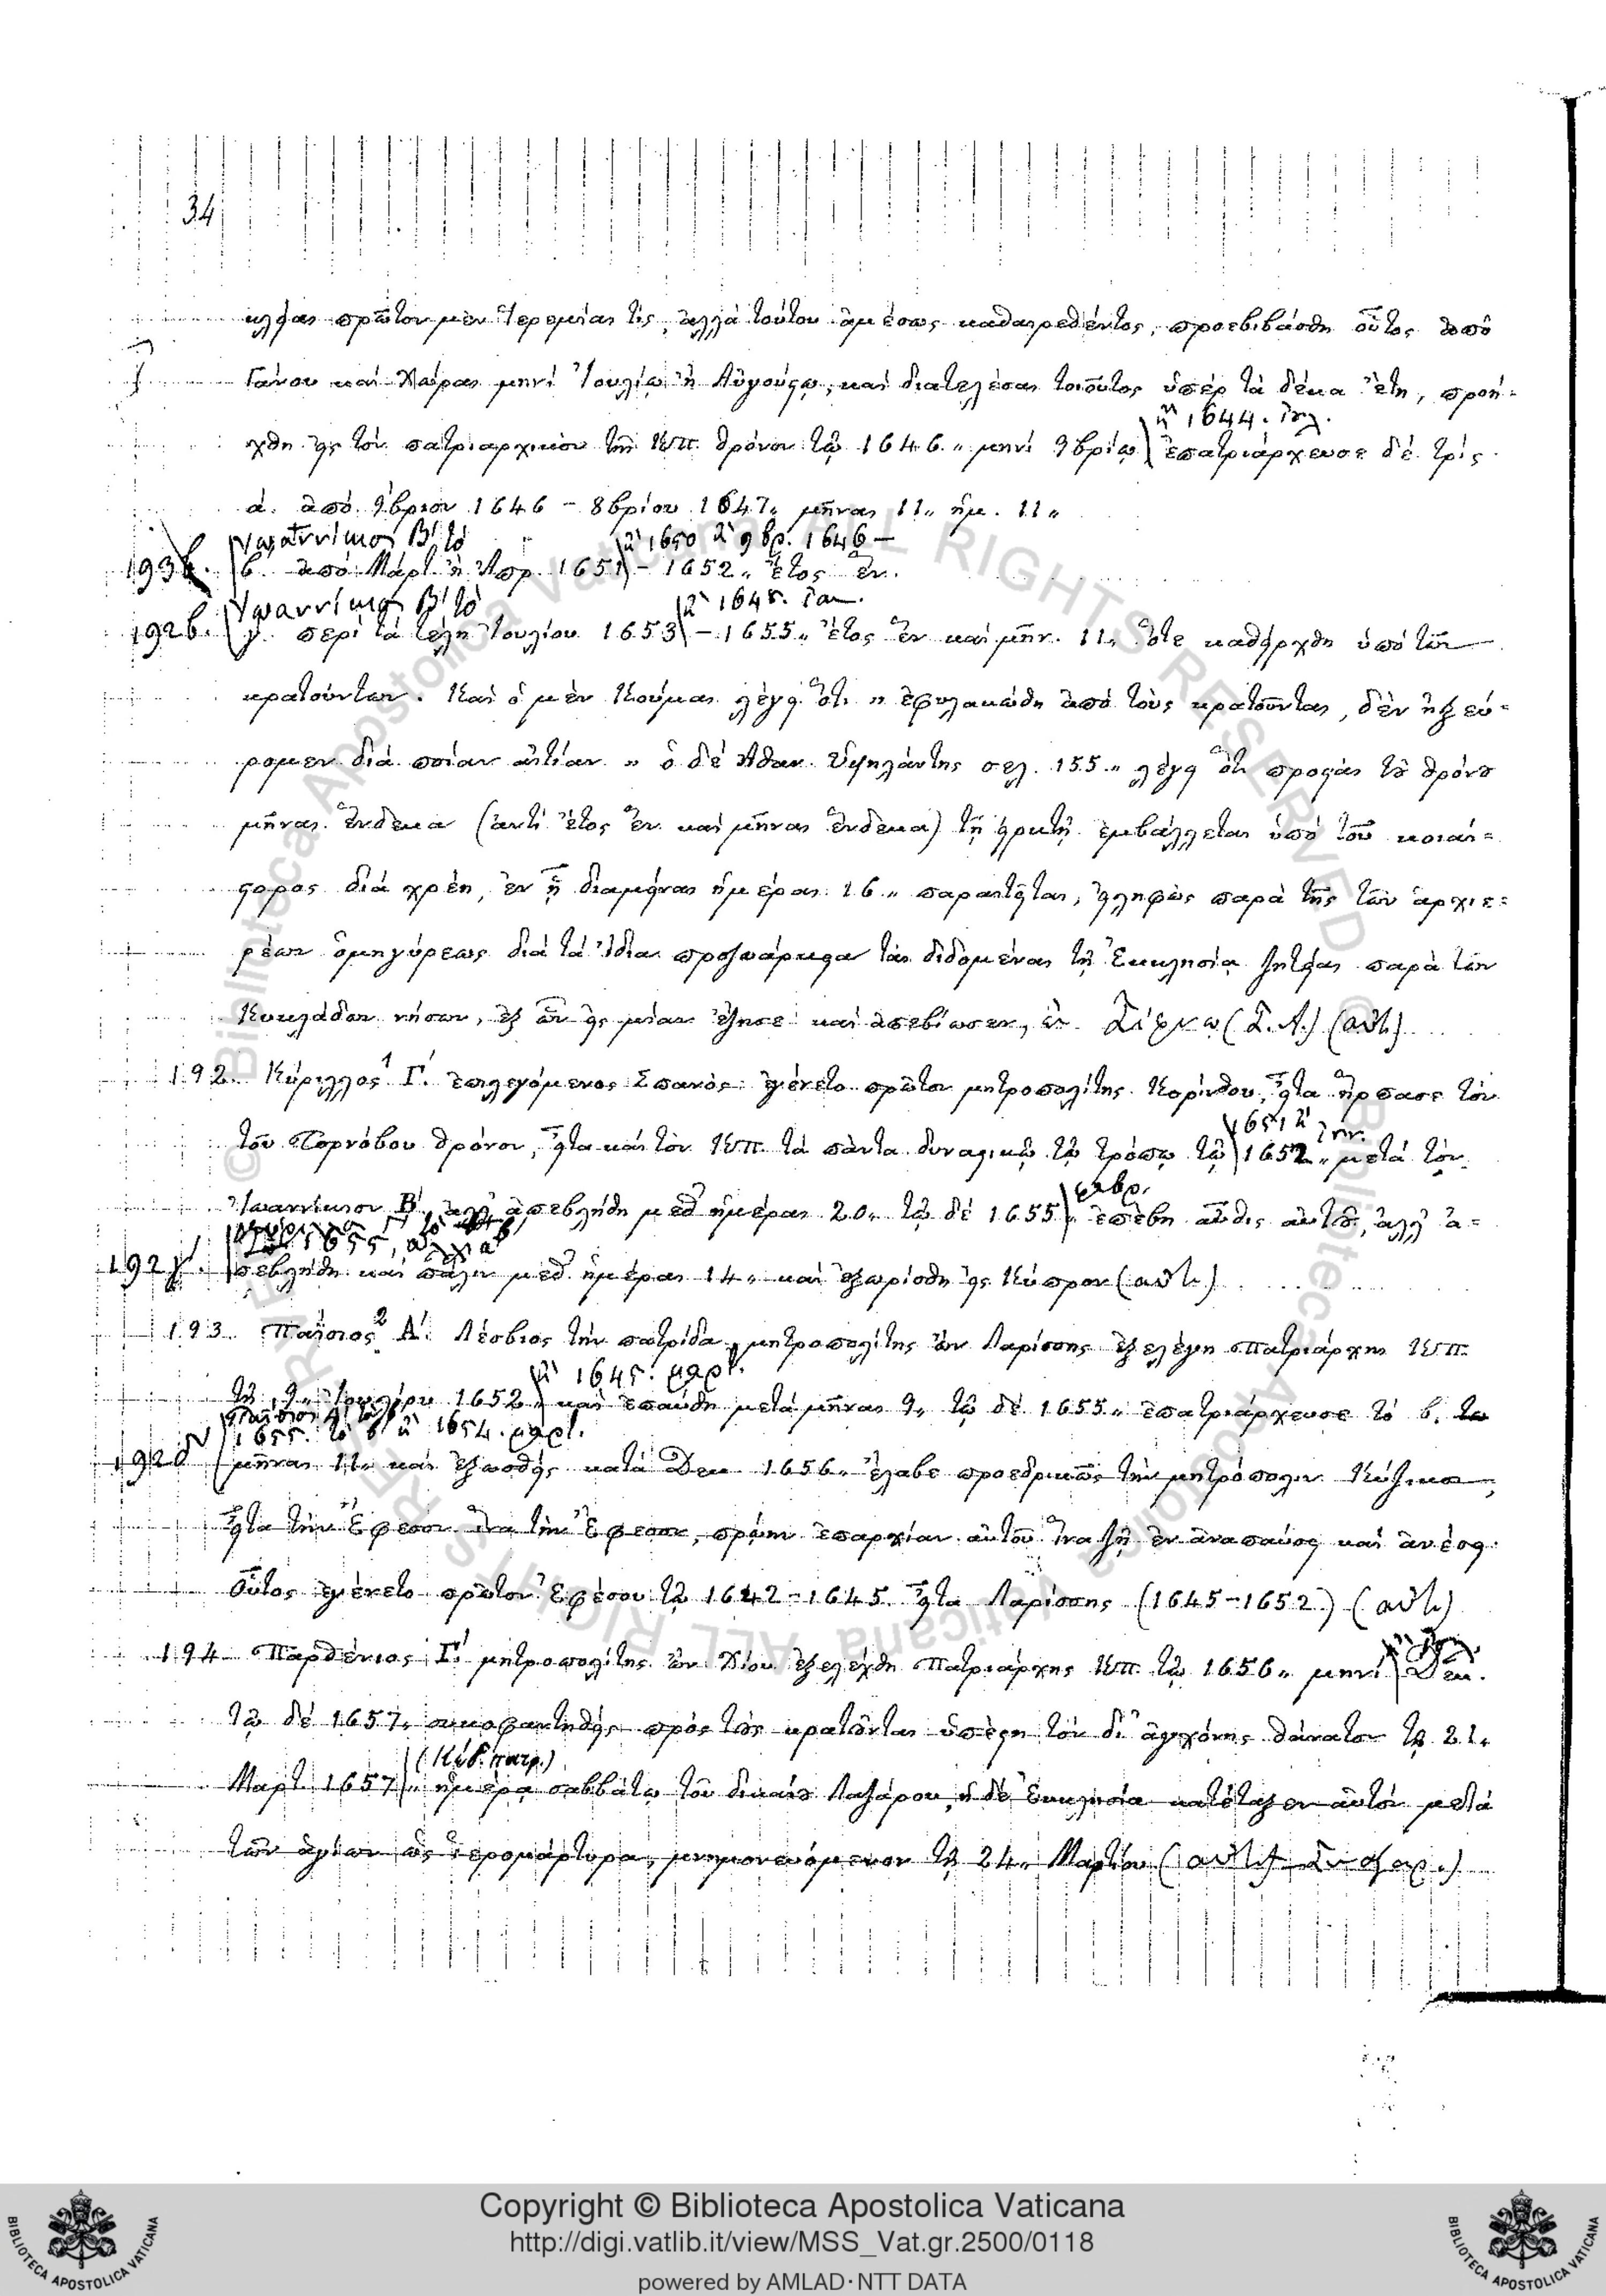 34
κλείας πρῶτον μὲν Ἱερεμίας τὶς, ἀλλὰ τούτου ἀμέσως καθαιρεθέντος, προεβιβάσθη οὗτος ἀπὸ
Γάνου καὶ Χώρας μηνὶ Ἰουλίῳ ἢ Αὐγούστῳ, καὶ διατελέσας τοιοῦτος ὑπὲρ τὰ δέκα ἔτη, προή-
ἢ 1644. Ἰουλ.
χθη εἰς τὸν πατριαρχικὸν τῆς Κπ. θρόνον τῷ 1646 „ μηνὶ 9βρίῳ ἐπατριάρχευσε δὲ τρίς
ά. ἀπὸ 9βριον 1646 - 8βρίου 1647 „ μῆνας 11 „ ἡμ. 11 „
Ἰωαννίκιος Β΄ τὸ ἢ 1650 ἢ 9βρ. 1646 –
193β. β. ἀπὸ Μάρτ. ἢ Ἀπρ. 1651 - 1652 „ ἔτος ἕν.
Ἰωαννίκιος Β΄ τὸ ἢ 1645. Ἰαν.
192β. γ. περὶ τὰ τέλη Ἰουλίου 1653 - 1655 „ ἔτος ἓν καὶ μῆν. 11 „ ὅτε καθείρχθη ὑπὸ τῶν
κρατούντων. Καὶ ὁ μὲν Κούμας λέγει ὅτι „ ἐφυλακώθη ἀπὸ τοὺς κρατοῦντας, δὲν ἠξεύ-
ρομεν διὰ ποίαν αἰτίαν „ ὁ δὲ Ἀθαν. Ὑψηλάντης σελ. 155 „ λέγει ὅτι προστὰς τοῦ θρόνου
μῆνας ἕνδεκα (ἀντὶ ἔτος ἓν καὶ μῆνας ἕνδεκα) τῇ εἱρκτῇ ἐμβάλλεται ὑπὸ τοῦ κοιαί-
στορος διὰ χρέη, ἐν ᾗ διαμείνας ἡμέρας 16 „ παραιτεῖται, εἰληφὼς παρὰ τῆς τῶν ἀρχιε-
ρέων ὁμηγύρεως διὰ τὰ ἴδια προσωάρκεια τὰς διδομένας τῇ Ἐκκλησίᾳ ζητείας παρὰ τῶν
Κυκλάδων νήσων, ἐξ ὧν εἰς μίαν ἔζησε καὶ ἀπεβίωσεν, ἐν Σίφνῳ (Σ. Α.) (αὐτ.)
192. Κύριλλος¹ Γ΄. ἐπιλεγόμενος Σπανὸς ἐγένετο πρῶτον μητροπολίτης Κορίνθου, εἶτα ἥρπασε τὸν
1651 ἢ Ἰην.
τοῦ Τορνόβου θρόνον, εἶτα καὶ τὸν Κπ. τὰ πάντα δυναστικῷ τῷ τρόπῳ τῷ 1652 „ μετὰ τὸν
φεβρ.
Ἰωαννίκιον Β΄, ἀλλ' ἀπεβλήθη μεθ' ἡμέρας 20 „ τῷ δὲ 1655 „ ἐπέβη αὖθις αὐτοῦ, ἀλλ' ἀ-
1655,
192γ΄. πεβλήθη καὶ πάλιν μεθ' ἡμέρας 14 „ καὶ ἐξωρίσθη εἰς Κύπρον (αὐτ.)
193. Παΐσιος² Α΄. Λέσβιος τὴν πατρίδα, μητροπολίτης ὢν Λαρίσσης ἐξελέγη Πατριάρχης Κπ.
ἢ 1645. μαρτ.
τῇ 9 „ Ἰουλίου 1652 „ καὶ ἐπαύθη μετὰ μῆνας 9 „ τῷ δὲ 1655 „ ἐπατριάρχευσε τὸ β.
Παΐσιος Α΄ τὸ β΄ 1655. τὸ β΄ ἢ 1654. μαρτ.
192δ μῆνας 11 „ καὶ ἐξωσθεὶς κατὰ Δεκ. 1656 „ ἔλαβε προεδρικῶς τὴν μητρόπολιν Κυζίκου,
εἶτα τὴν Ἔφεσον ἵνα τὴν Ἔφεσον, πρώην ἐπαρχίαν αὐτοῦ ἵνα ζῇ ἐν ἀναπαύσει καὶ ἀνέσει.
Οὗτος ἐγένετο πρῶτον Ἐφέσου τῷ 1642 - 1645 εἶτα Λαρίσσης (1645 - 1652) (αὐτ.)
194 Παρθένιος Γ΄. μητροπολίτης ὢν Χίου ἐξελέχθη Πατριάρχης Κπ. τῷ 1656 „ μηνὶ Δεκ.
τῷ δὲ 1657 „ συκοφαντηθεὶς πρὸς τοὺς κρατοῦντας ὑπέστη τὸν δι' ἀγχόνης θάνατον τῇ 21 „
Μαρτ. 1657 „ ἡμέρᾳ σαββάτῳ τοῦ δικαίου Λαζάρου, ἡ δὲ Ἐκκλησία κατέταξεν αὐτὸν μετὰ
τῶν ἁγίων ὡς ἱερομάρτυρα, μνημονευόμενον τῇ 24 „ Μαρτίου (αὐτ.
Copyright © Biblioteca Apostolica Vaticana
http://digi.vatlib.it/view/MSS_Vat.gr.2500/0118
powered by AMLAD·NTT DATA